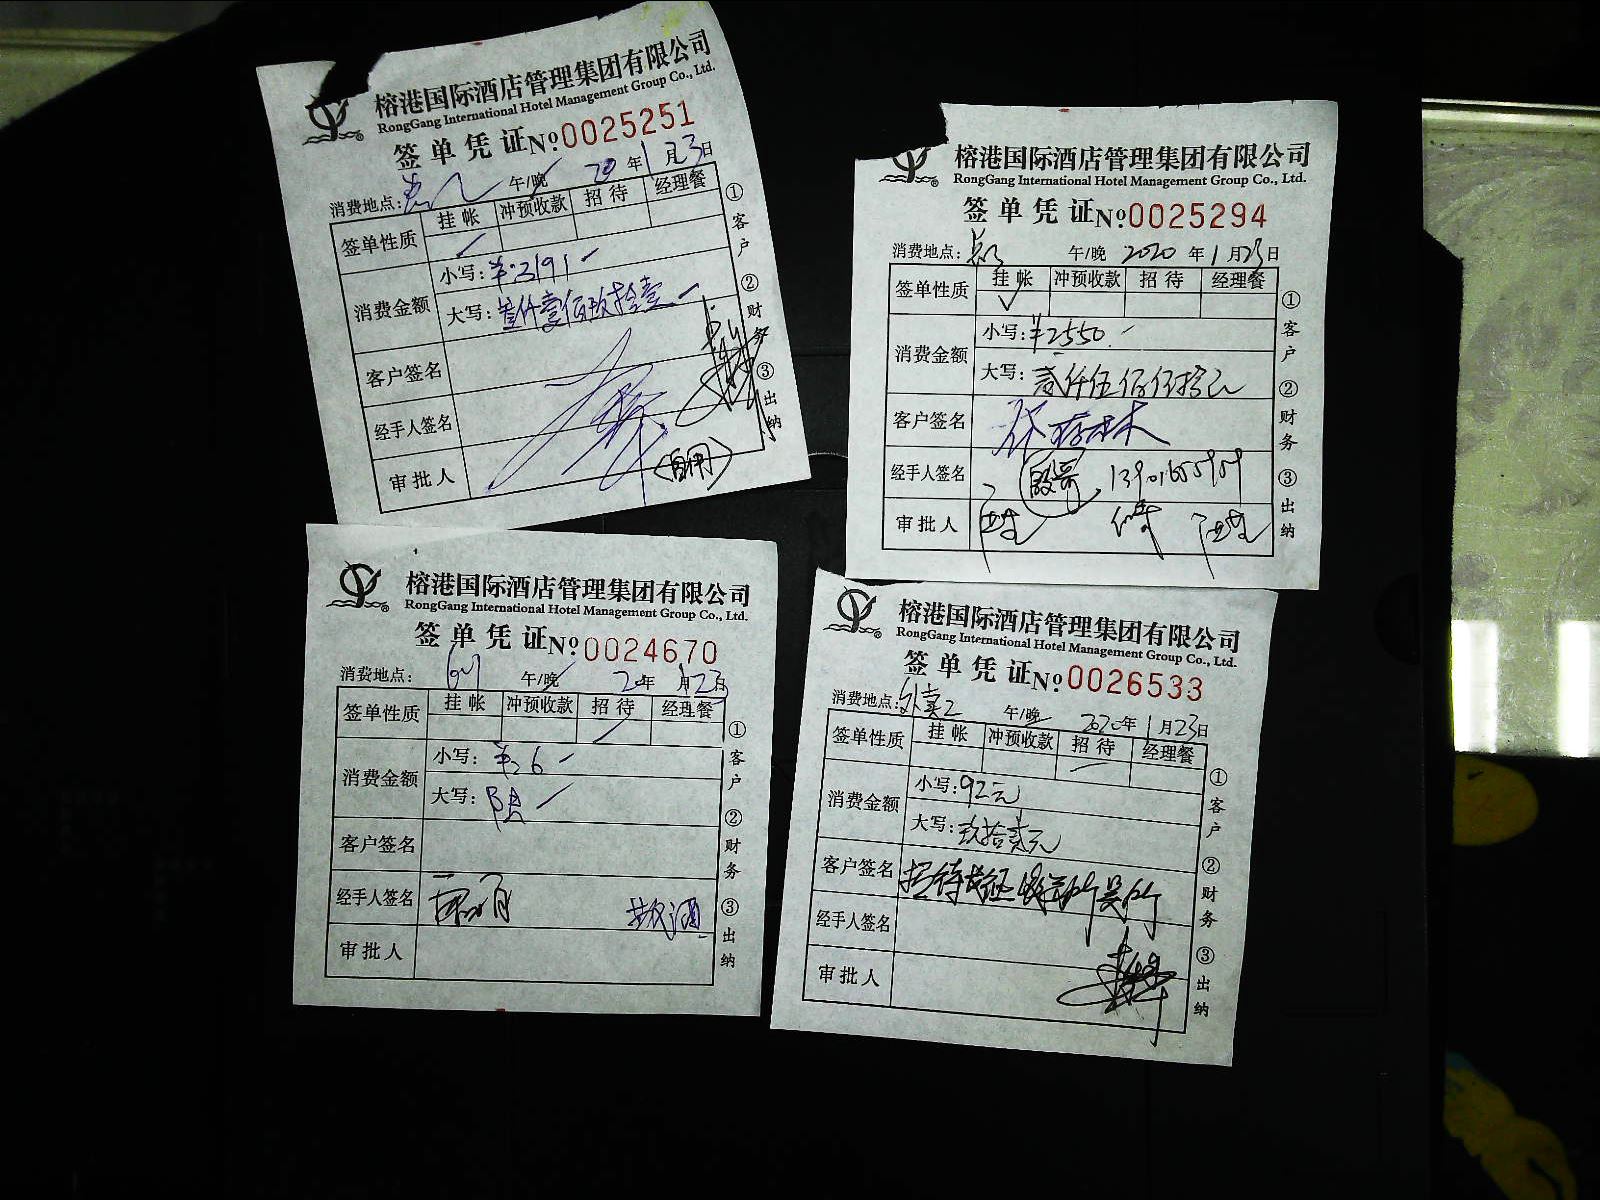 榕港国际酒店管理集团有限公司
RongGang International Hotel Management Group Co., Ltd.
签单凭证 №0025251
消费地点: 午/晚 20年1月23日
签单性质 挂帐 冲预收款 招待 经理餐
消费金额 小写:¥:3191
大写:叁仟壹佰玖拾壹
客户签名
经手人签名
审批人
(自用)
①客户 ②财务 ③出纳
榕港国际酒店管理集团有限公司
RongGang International Hotel Management Group Co., Ltd.
签单凭证 №0025294
消费地点: 午/晚 2020年1月23日
签单性质 挂帐 冲预收款 招待 经理餐
消费金额 小写:¥2550.
大写:贰仟伍佰伍拾元
客户签名
经手人签名 殷哥
审批人
①客户 ②财务 ③出纳
榕港国际酒店管理集团有限公司
RongGang International Hotel Management Group Co., Ltd.
签单凭证 №0024670
消费地点: 午/晚 20年1月23日
签单性质 挂帐 冲预收款 招待 经理餐
消费金额 小写:
大写:陆
客户签名
经手人签名
审批人
①客户 ②财务 ③出纳
榕港国际酒店管理集团有限公司
RongGang International Hotel Management Group Co., Ltd.
签单凭证 №0026533
消费地点:外卖2 午/晚 2020年1月23日
签单性质 挂帐 冲预收款 招待 经理餐
消费金额 小写:92元
大写:玖拾贰元
客户签名 招待
经手人签名
审批人
①客户 ②财务 ③出纳